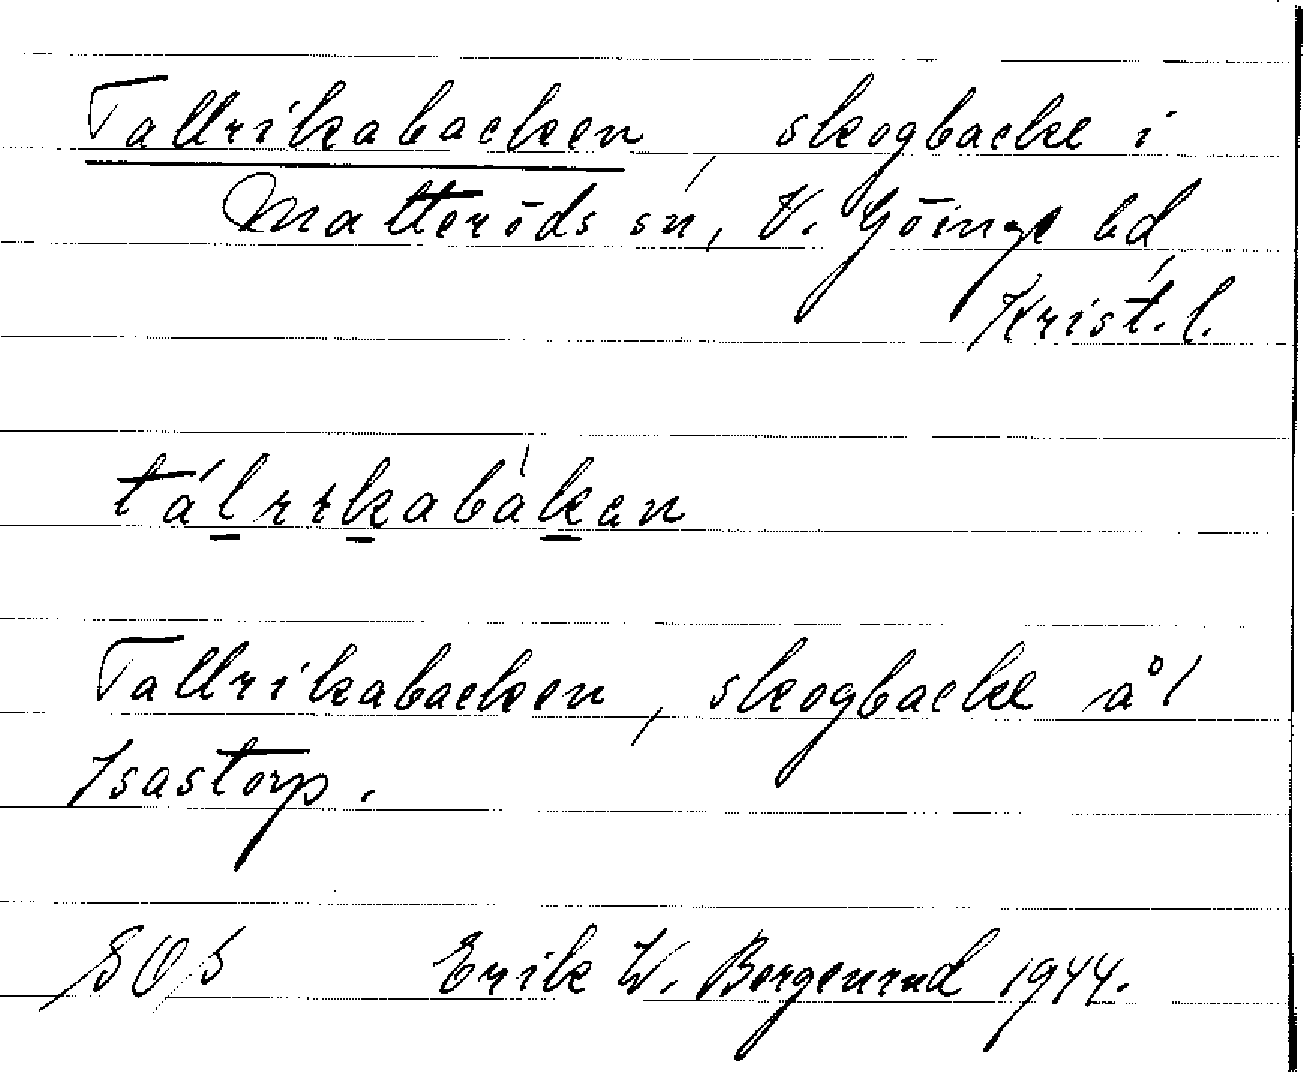 Tallrikabacken, skogbacke i
Matteröds sn, V. Göinge hd,
Krist. l.
tálrɩkabàkan
Tallrikabacken, skogbacke å
Isastorp.
Erik W. Borgenrud 1944.